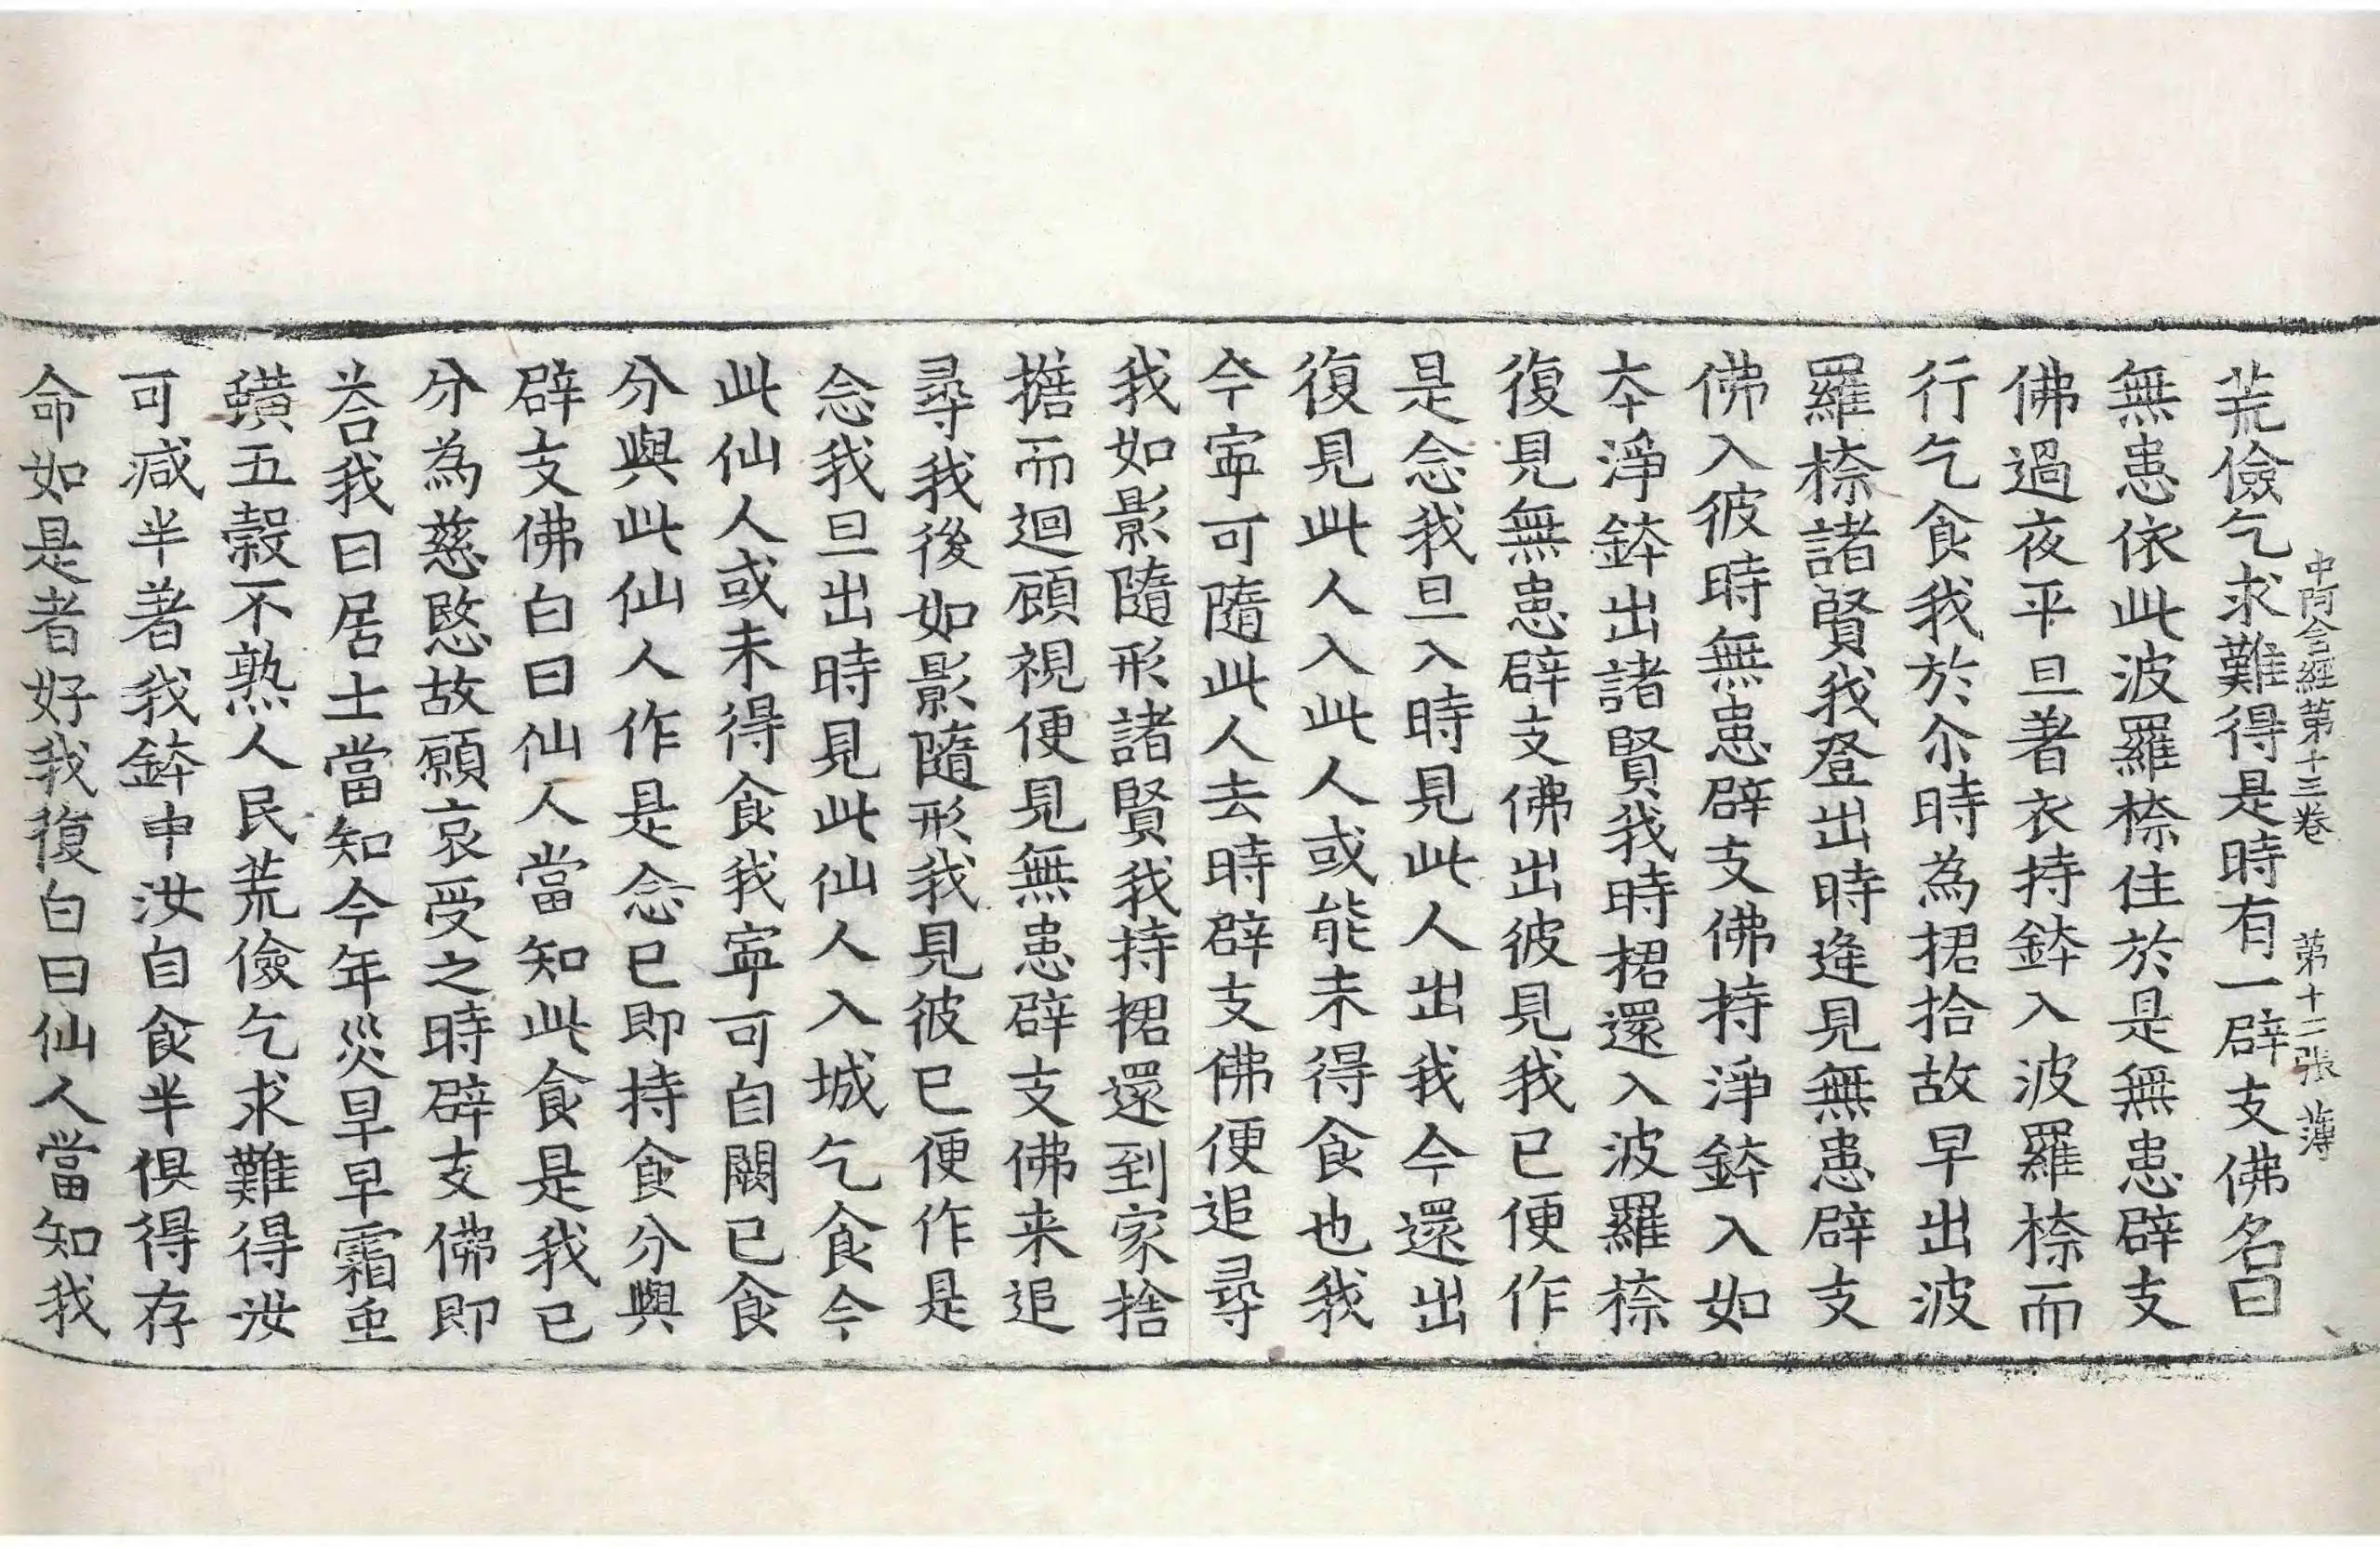 中阿含經第十三卷 第十二張 薄
荒儉乞求難得是時有一辟支佛名曰
無患依此波羅㮈住於是無患辟支
佛過夜平旦著衣持鉢入波羅㮈而
行乞食我於尒時為捃拾故早出波
羅㮈諸賢我登出時逢見無患辟支
佛入彼時無患辟支佛持淨鉢入如
夲淨鉢出諸賢我時捃還入波羅㮈
復見無患辟支佛出彼見我已便作
是念我旦入時見此人出我今還出
復見此人入此人或能未得食也我
今寧可隨此人去時辟支佛便追尋
我如影隨形諸賢我持捃還到家捨
擔而迴顧視便見無患辟支佛来追
尋我後如影隨形我見彼已便作是
念我旦出時見此仙人入城乞食今
此仙人或未得食我寧可自闕已食
分與此仙人作是念已即持食分與
辟支佛白曰仙人當知此食是我已
分為慈愍故願哀受之時辟支佛即
荅我曰居士當知今年災旱早霜虫
蟥五穀不熟人民荒儉乞求難得汝
可减半著我鉢中汝自食半俱得存
命如是者好我復白曰仙人當知我